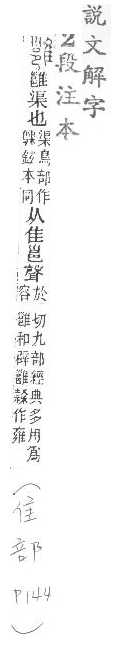 說文解字
之段注本
雝 雝渠也渠鳥部作鉉本同从隹邕聲於容切九部經典多用爲雝和辟雝隸作雍
(隹部 P144)